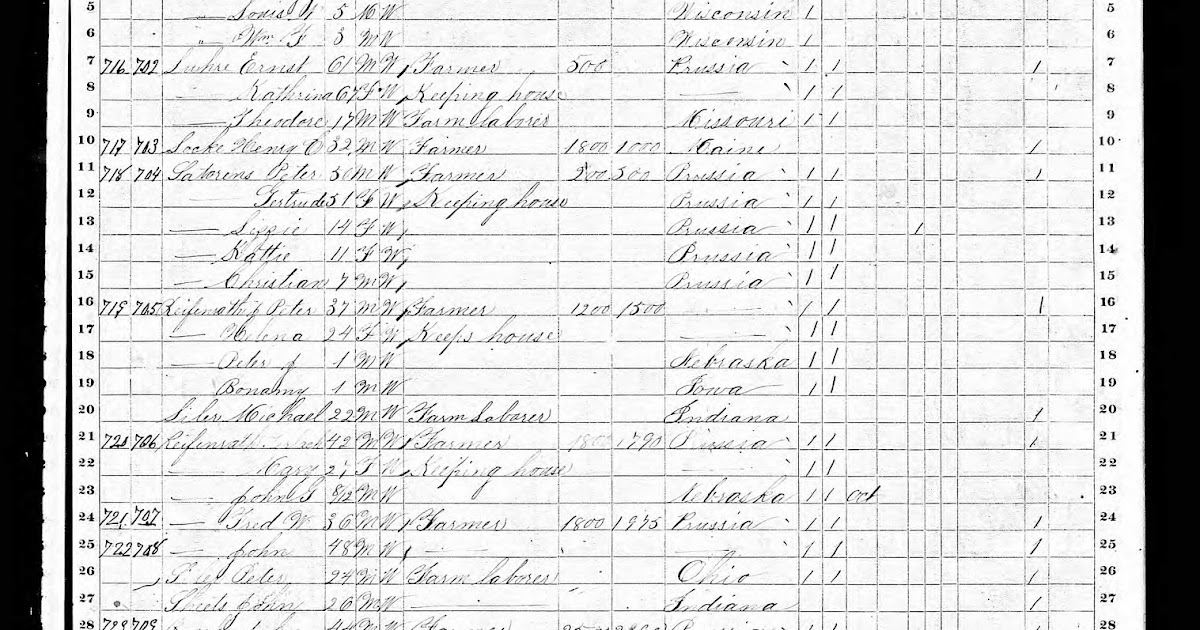 5 — Louis 5 M W Wisconsin 1 5
6 " Wm F 3 M W Wisconsin 1 6
7 716 702 Luhre Ernst 61 M W Farmer 500 Prussia 1 1 1 7
8 — Kathrina 67 F W Keeping house — 1 1 8
9 — Theodore 17 M W Farm laborer Missouri 1 1 9
10 717 703 Locke Henry C 32 M W Farmer 1800 1000 Maine 1 10
11 718 704 Satorens Peter 50 M W Farmer 200 500 Prussia 1 1 1 11
12 — Gertrude 51 F W Keeping house Prussia 1 1 12
13 — Lizzie 14 F W Prussia 1 1 1 13
14 — Kattie 11 F W Prussia 1 1 14
15 — Christian 7 M W Prussia 1 1 15
16 719 705 Reifenrath J Peter 37 M W Farmer 1200 1500 — 1 1 1 16
17 — Helena 24 F W Keeps house — 1 1 17
18 — Peter J 1 M W Nebraska 1 1 18
19 Bonamy 1 M W Iowa 1 1 19
20 Siler Michael 22 M W Farm Laborer Indiana 1 20
21 720 706 Reifenrath 42 M W Farmer 1800 1790 Prussia 1 1 1 21
22 — Mary 27 F W Keeping house — 1 1 22
23 — John G 8/12 M W Nebraska 1 1 Oct 23
24 721 707 — Fred W 36 M W Farmer 1800 1975 Prussia 1 1 1 24
25 722 708 — John 48 M W — — 1 1 1 25
26 Peter 24 M W Farm laborer Ohio 1 1 1 26
27 Sheets John 26 M W — Indiana 1 27
28 723 709 44 M W Farmer Prussia 1 1 1 28